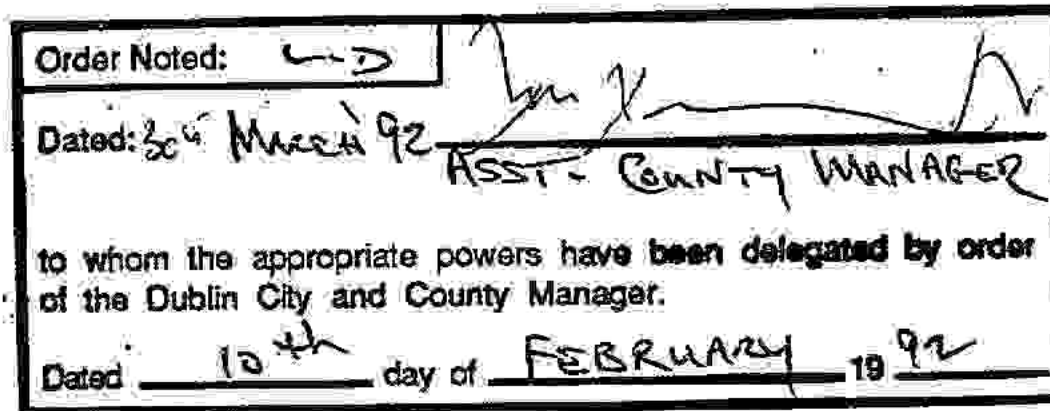 Order Noted:
Dated: 30th March '92
ASST. COUNTY MANAGER
to whom the appropriate powers have been delegated by order
of the Dublin City and County Manager.
Dated 10th day of FEBRUARY 19 92